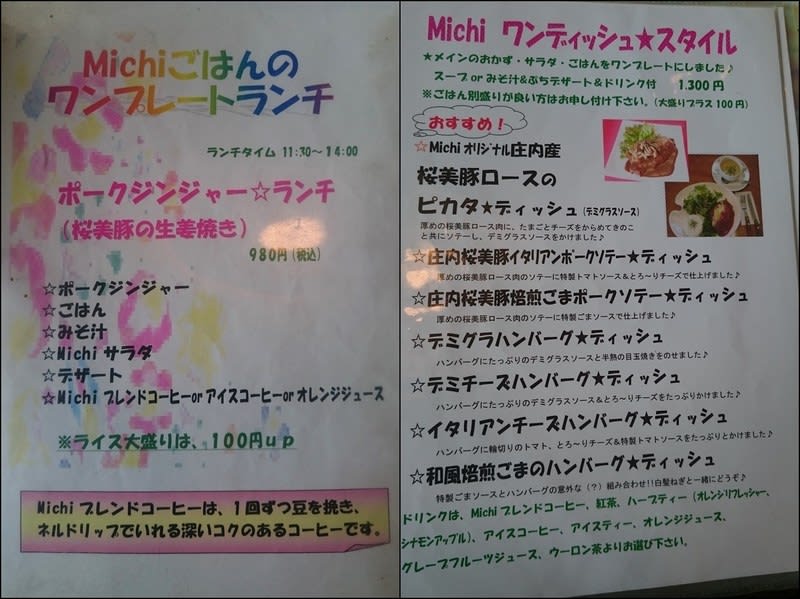 Michiごはんの
ワンプレートランチ
ランチタイム 11:30～14:00
ポークジンジャー☆ランチ
(桜美豚の生姜焼き)
980円(税込)
☆ポークジンジャー
☆ごはん
☆みそ汁
☆Michiサラダ
☆デザート
☆Michiブレンドコーヒーorアイスコーヒーorオレンジジュース
※ライス大盛りは、100円up
Michiブレンドコーヒーは、1回ずつ豆を挽き、
ネルドリップでいれる深いコクのあるコーヒーです。
Michi ワンディッシュ★スタイル
★メインのおかず・サラダ・ごはんをワンプレートにしました♪
スープorみそ汁&ぷちデザート&ドリンク付 1.300円
※ごはん別盛りが良い方はお申し付け下さい。(大盛りプラス100円)
おすすめ!
☆Michiオリジナル庄内産
桜美豚ロースの
ピカタ★ディッシュ(デミグラスソース)
厚めの桜美豚ロース肉に、たまごとチーズをからめてきのこ
と共にソテーし、デミグラスソースをかけました♪
☆庄内桜美豚イタリアンポークソテー★ディッシュ
厚めの桜美豚ロース肉のソテーに特製トマトソース&とろ～りチーズで仕上げました♪
☆庄内桜美豚焙煎ごまポークソテー★ディッシュ
厚めの桜美豚ロース肉のソテーに特製ごまソースで仕上げました♪
☆デミグラハンバーグ★ディッシュ
ハンバーグにたっぷりのデミグラスソースと半熟の目玉焼きをのせました♪
☆デミチーズハンバーグ★ディッシュ
ハンバーグにたっぷりのデミグラスソース&とろ～りチーズをたっぷりかけました♪
☆イタリアンチーズハンバーグ★ディッシュ
ハンバーグに輪切りのトマト、とろ～りチーズ&特製トマトソースをたっぷりとかけました♪
☆和風焙煎ごまのハンバーグ★ディッシュ
特製ごまソースとハンバーグの意外な(?)組み合わせ!!白髪ねぎと一緒にどうぞ♪
ドリンクは、Michiブレンドコーヒー、紅茶、ハーブティー(オレンジリフレッシャー、
シナモンアップル)、アイスコーヒー、アイスティー、オレンジジュース、
グレープフルーツジュース、ウーロン茶よりお選び下さい。